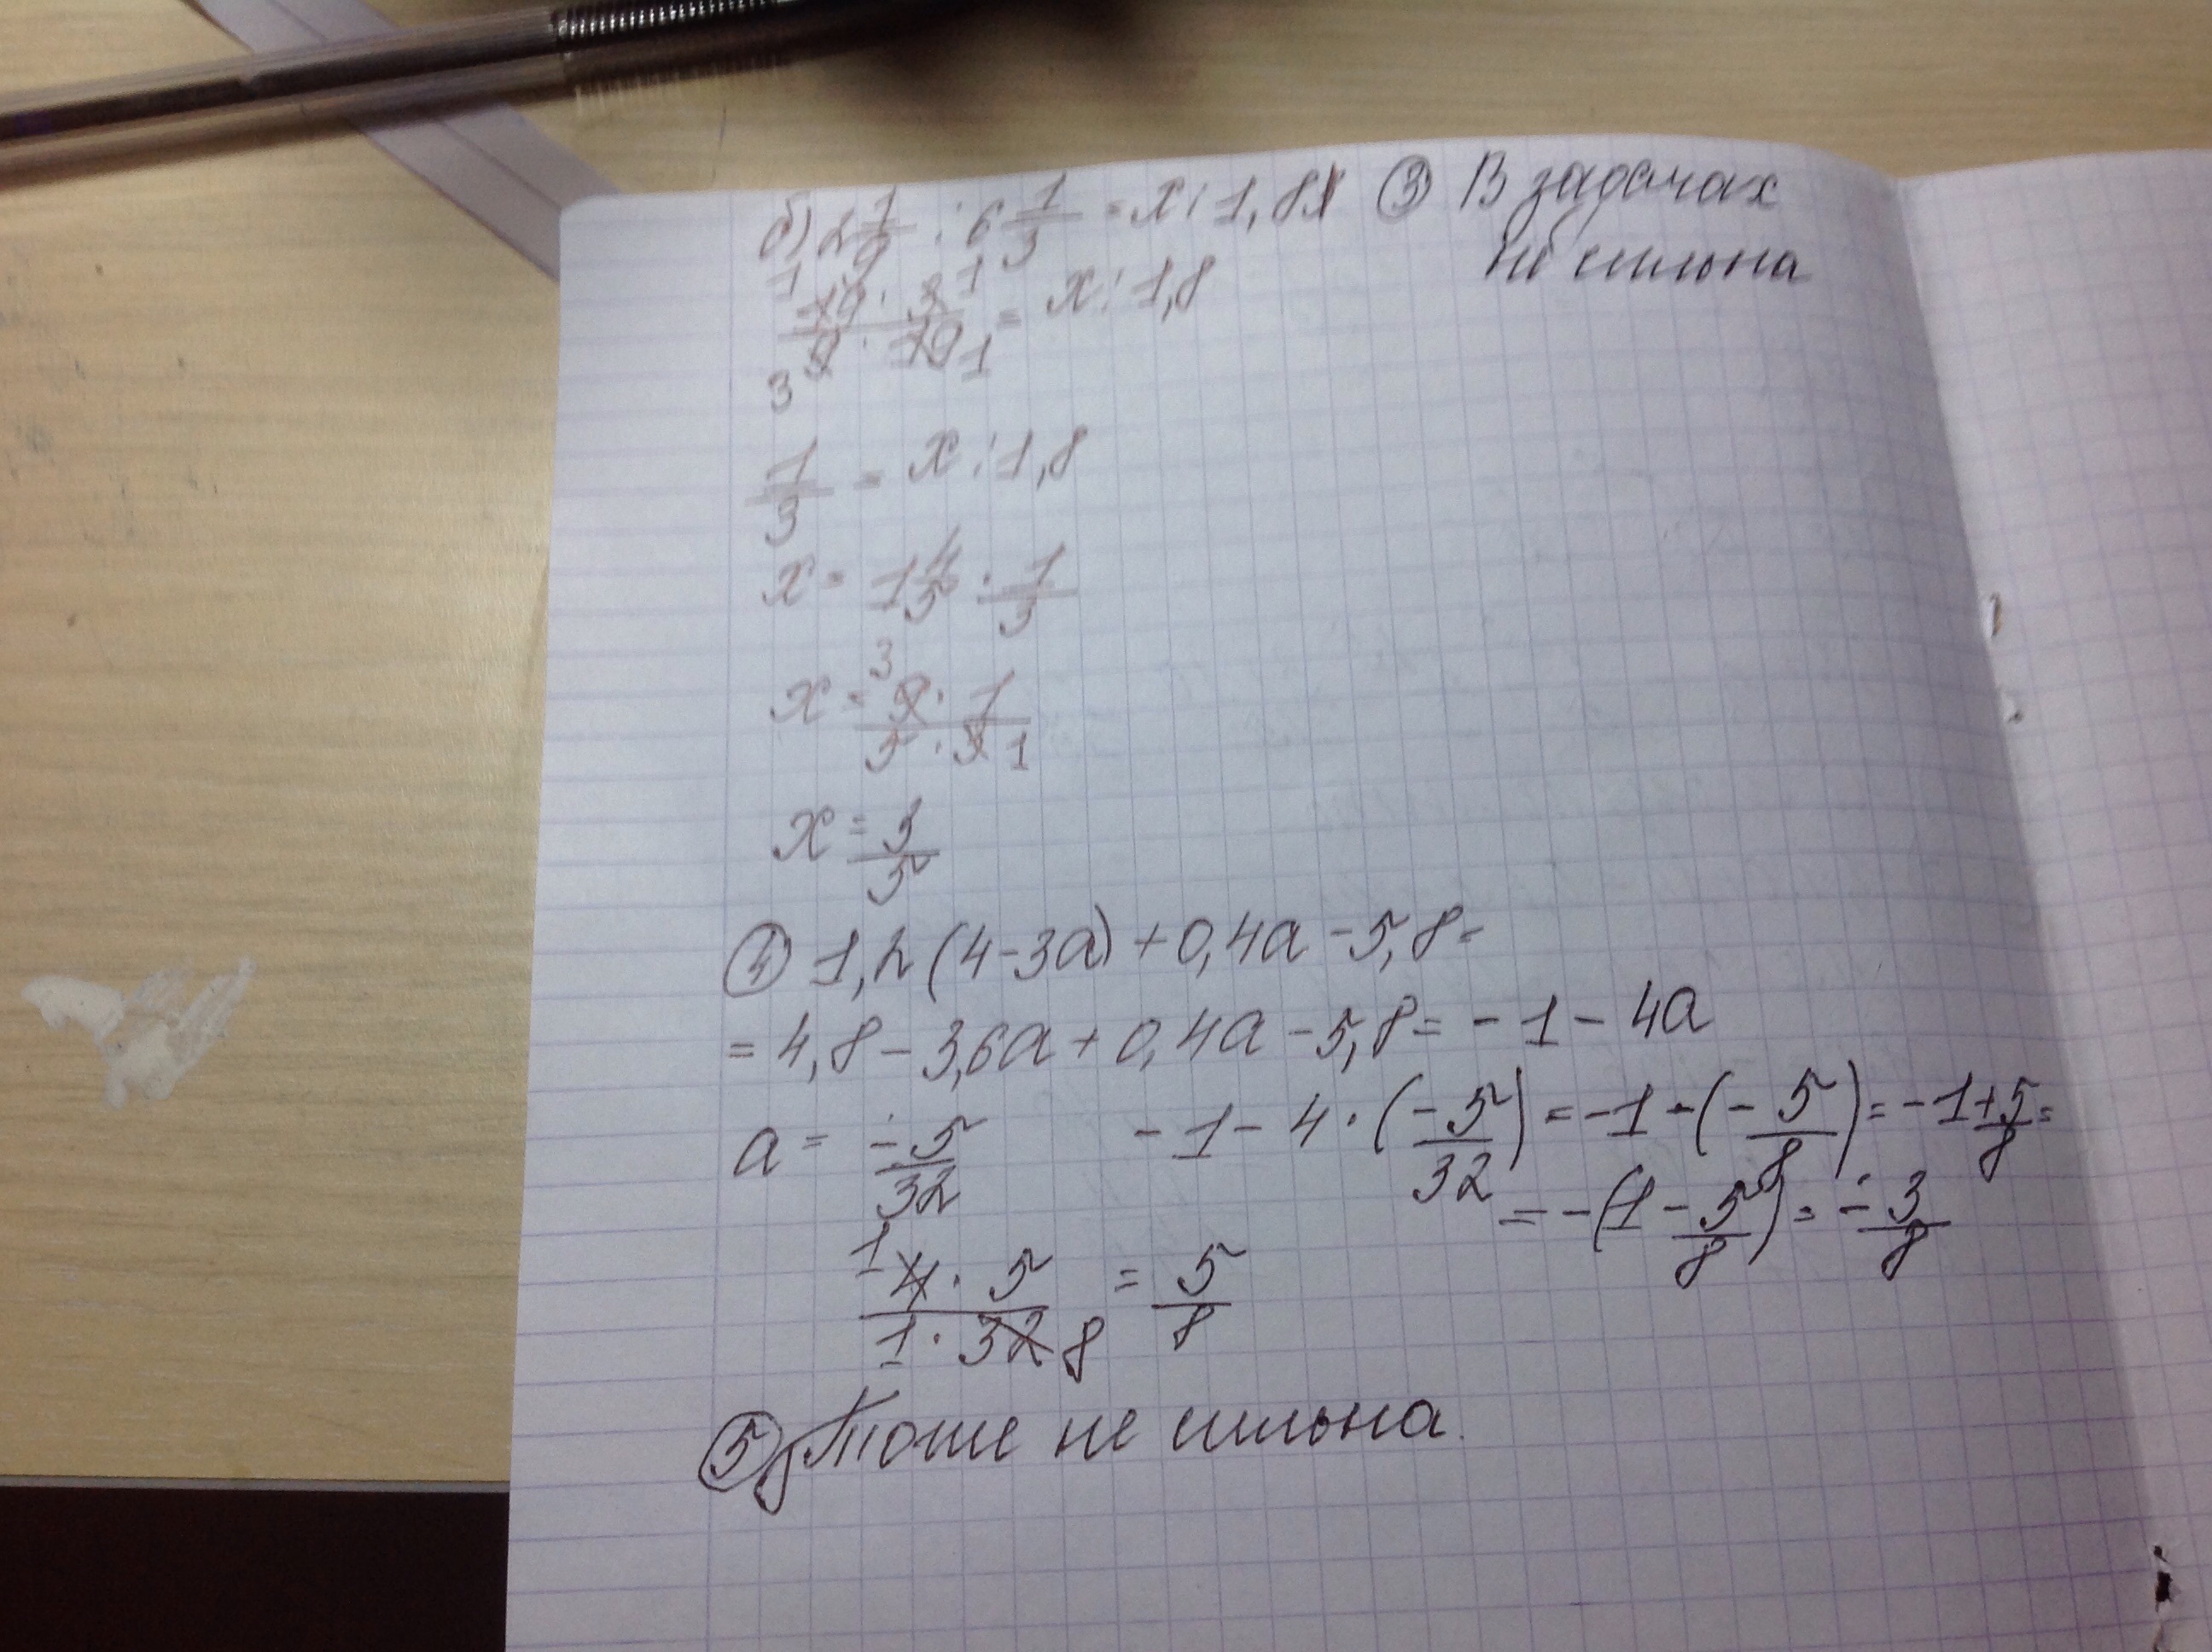 б) 2 1/9 : 6 1/3 = x : 1,8
③ В задачах
не сильна
19 · 3 / 9 · 19 = x : 1,8
1 1 3 1
1/3 = x : 1,8
x = 1 4/5 · 1/3
x = 9 · 1 / 5 · 3
3 1
x = 3/5
④ 1,2 (4 - 3a) + 0,4a - 5,8 =
= 4,8 - 3,6a + 0,4a - 5,8 = - 1 - 4a
a = - 5/32
- 1 - 4 · (- 5/32) = - 1 - (- 5/8) = - 1 + 5/8 =
= - (1 - 5/8) = - 3/8
4 · 5 / 1 · 32 = 5/8
1 8
⑤ Тоше не сильна.